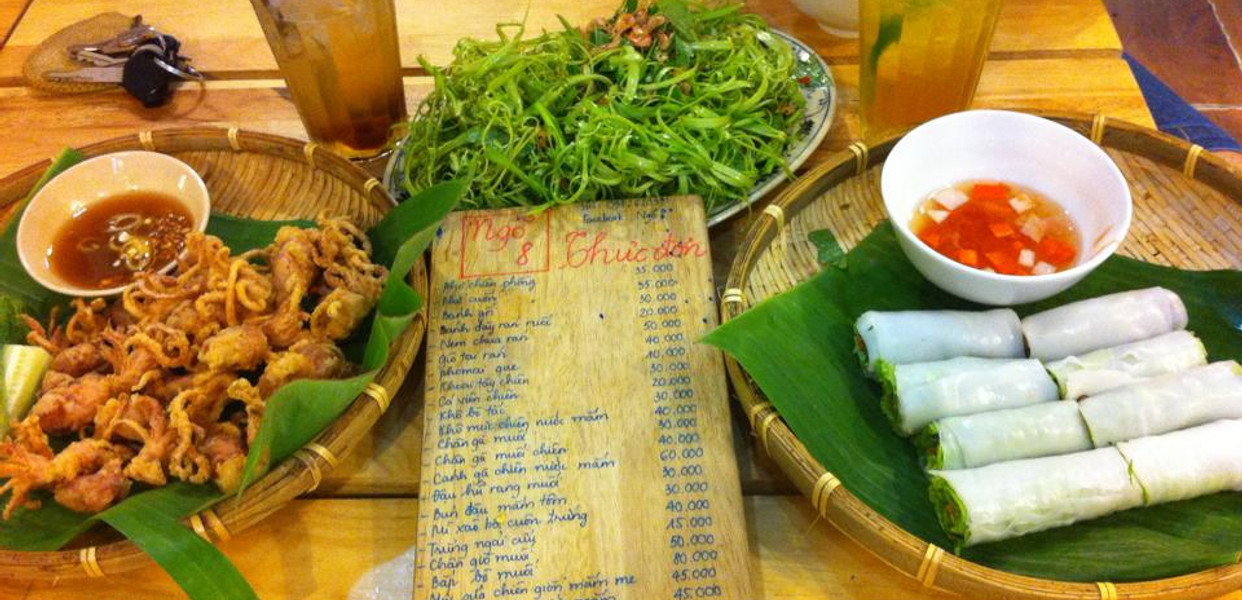 Facebook Ngõ 8
Ngõ 8 Thực đơn
35.000
Mực chiên phồng 35.000
Phở cuốn 30.000
Bánh gối 20.000
Bánh dày rán ruốc 50.000
Nem chua rán 40.000
Giò tai rán 40.000
phomai que 30.000
Khoai tây chiên 20.000
Cá viên chiên 30.000
Khô bò tộc 40.000
Khô mực chiên nước mắm 30.000
Chân gà muối 40.000
Chân gà muối chiên 60.000
Cánh gà chiên nước mắm 30.000
Đậu hũ rang muối 30.000
Bún đậu mắm tôm 40.000
xào bò cuốn trứng 15.000
Trứng ngải cứu 50.000
Chân giò muối 80.000
Bắp bò muối 45.000
sữa chiên giòn mắm me 45.000